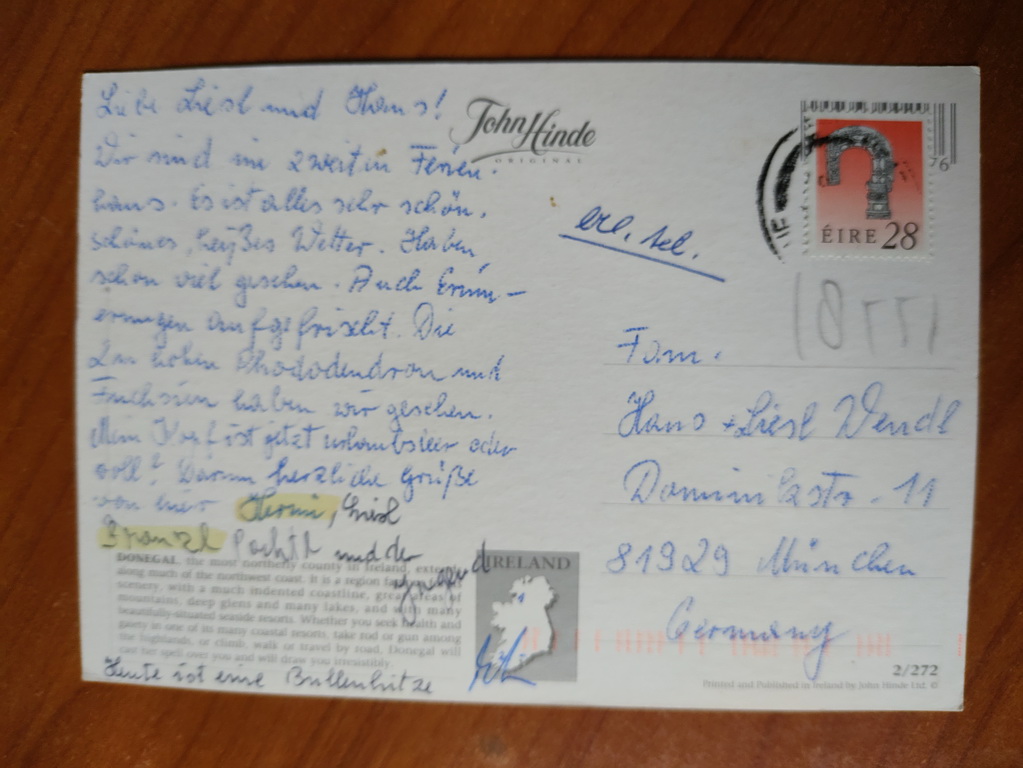 Liebe Liesl und Hans!
Wir sind im zweiten Ferien-
haus. Es ist alles sehr schön,
schönes, heißes Wetter. Haben
schon viel gesehen. Auch Erinn-
erungen aufgefrischt. Die
2m hohen Rhododendron und
Fuchsien haben wir gesehen.
Mein Kopf ist jetzt urlaubsleer oder
voll? Darum herzliche Grüße
von hier Hermi, Liesl
Franzl und der
DONEGAL, the most northerly county in Ireland, extends
along much of the northwest coast. It is a region
scenery, with a much indented coastline, great areas of
mountains, deep glens and many lakes, and with many
beautifully-situated seaside resorts. Whether you seek health and
gaiety in one of its many coastal resorts, take rod or gun among
the highlands, or climb, walk or travel by road, Donegal will
cast her spell over you and will draw you irresistibly.
Heute ist eine Bullenhitze
John Hinde
ORIGINAL
erl. tel.
76
ÉIRE 28
Fam.
Hans + Liesl Wendl
11
81929 München
Germany
IRELAND
2/272
Printed and Published in Ireland by John Hinde Ltd. ©